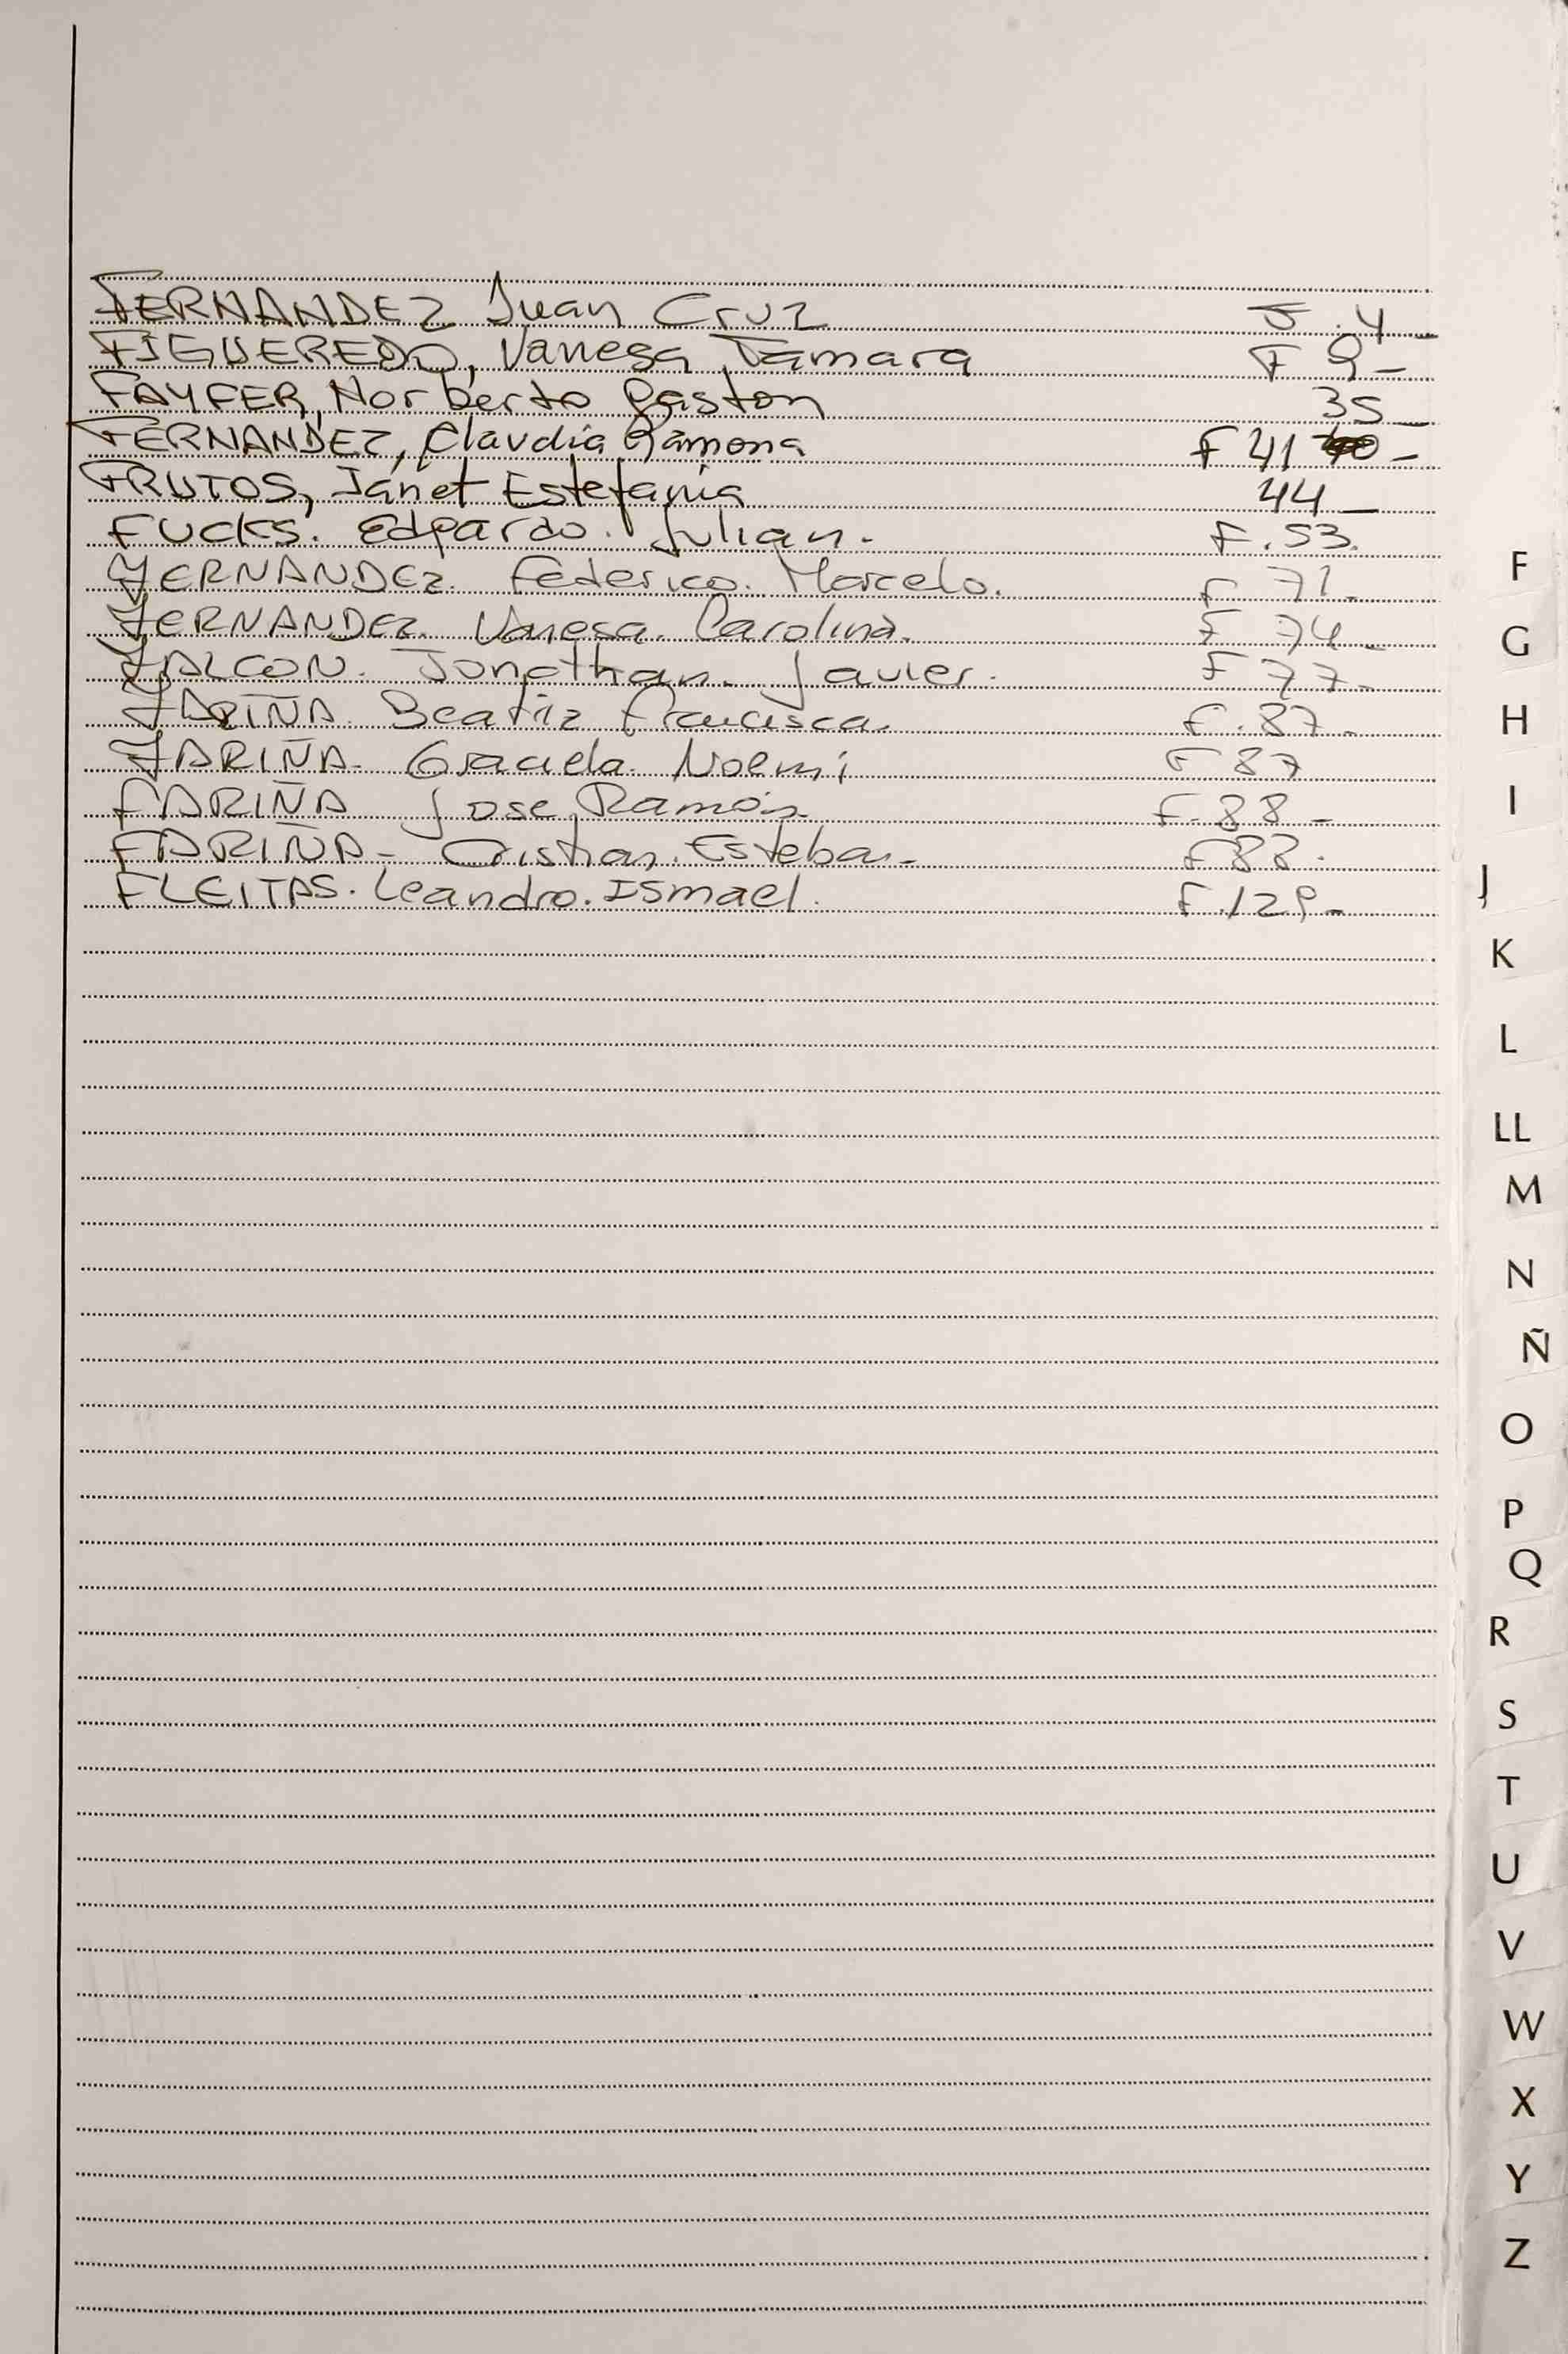 FERNANDEZ Juan Cruz F. 4 -
FIGUEREDO, Vanesa Tamara F 9 -
FAYFER, Norberto Gaston 35 -
FERNANDEZ, Claudia Ramona F 41 -
FRUTOS, Janet Estefania 44 -
FUCKS. Edgardo. Julian. F. 53.
FERNANDEZ. Federico. Marcelo. F 71 -
FERNANDEZ. Vanesa. Carolina. F 74 -
FALCON. Jonathan. Javier. F 77 -
FARIÑA. Beatriz Francisca. F. 87 -
FARIÑA - Graciela. Noemi F 87
FARIÑA Jose Ramón. F. 88 -
FARIÑA - Cristian. Esteban - F 88.
FLEITAS. Leandro. Ismael. F. 129 -
F
G
H
I
J
K
L
LL
M
N
Ñ
O
P
Q
R
S
T
U
V
W
X
Y
Z